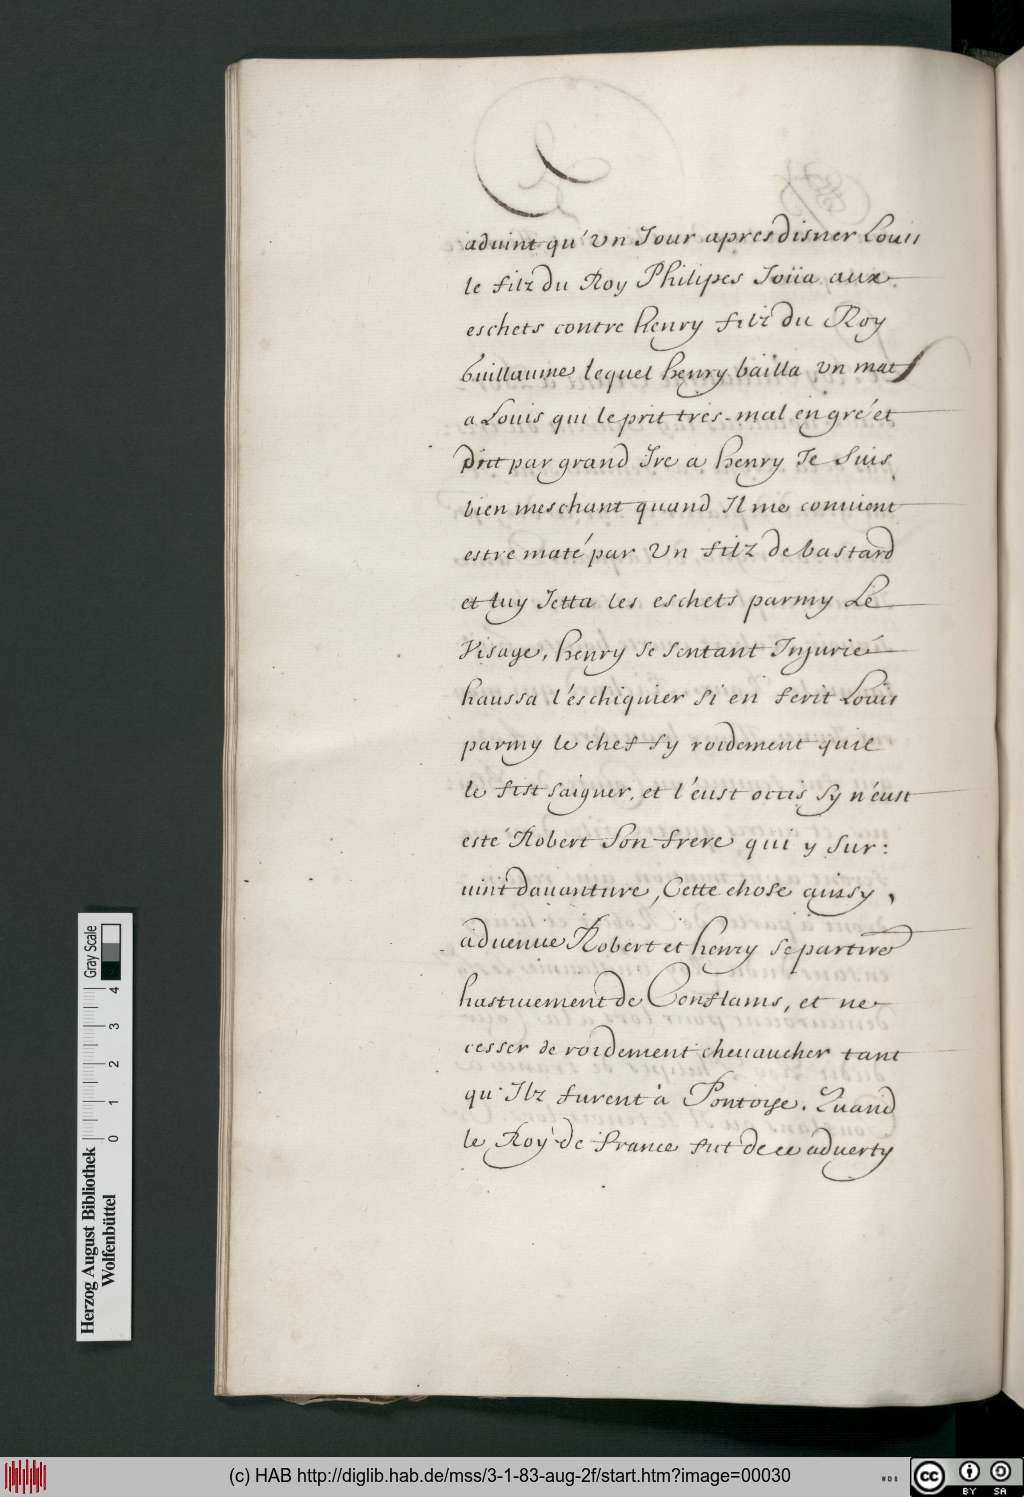 aduint qu'vn Jour apres disner Louis
le filz du Roy Philipes Joüa aux
eschets contre henry filz du Roy
Guillaume lequel henry bailla vn mat
a Louis qui le prit tres-mal en gré et
Dict par grand Ire a henry Je suis
bien meschant quand Il me conuient
estre maté par vn filz de bastard
et luy Jetta les eschets parmy Le
Visage, henry se sentant Injurié
haussa l'eschiquier si en ferit Louis
parmy le chef sy roidement quil
le fist saigner, et l'eust occis sy n'eust
esté Robert Son frere qui y Sur:
uint dauanture, Cette chose aussy,
aduenue Robert et henry se partire
hastiuement de Conflams, et ne
cesser de roidement cheuaucher tant
qu'Ilz furent à Pontoise. Quand
le Roy de france fut de ce aduerty
Herzog August Bibliothek
Wolfenbüttel
Gray Scale
0 1 2 3 4
(c) HAB http://diglib.hab.de/mss/3-1-83-aug-2f/start.htm?image=00030
WDB
cc BY SA